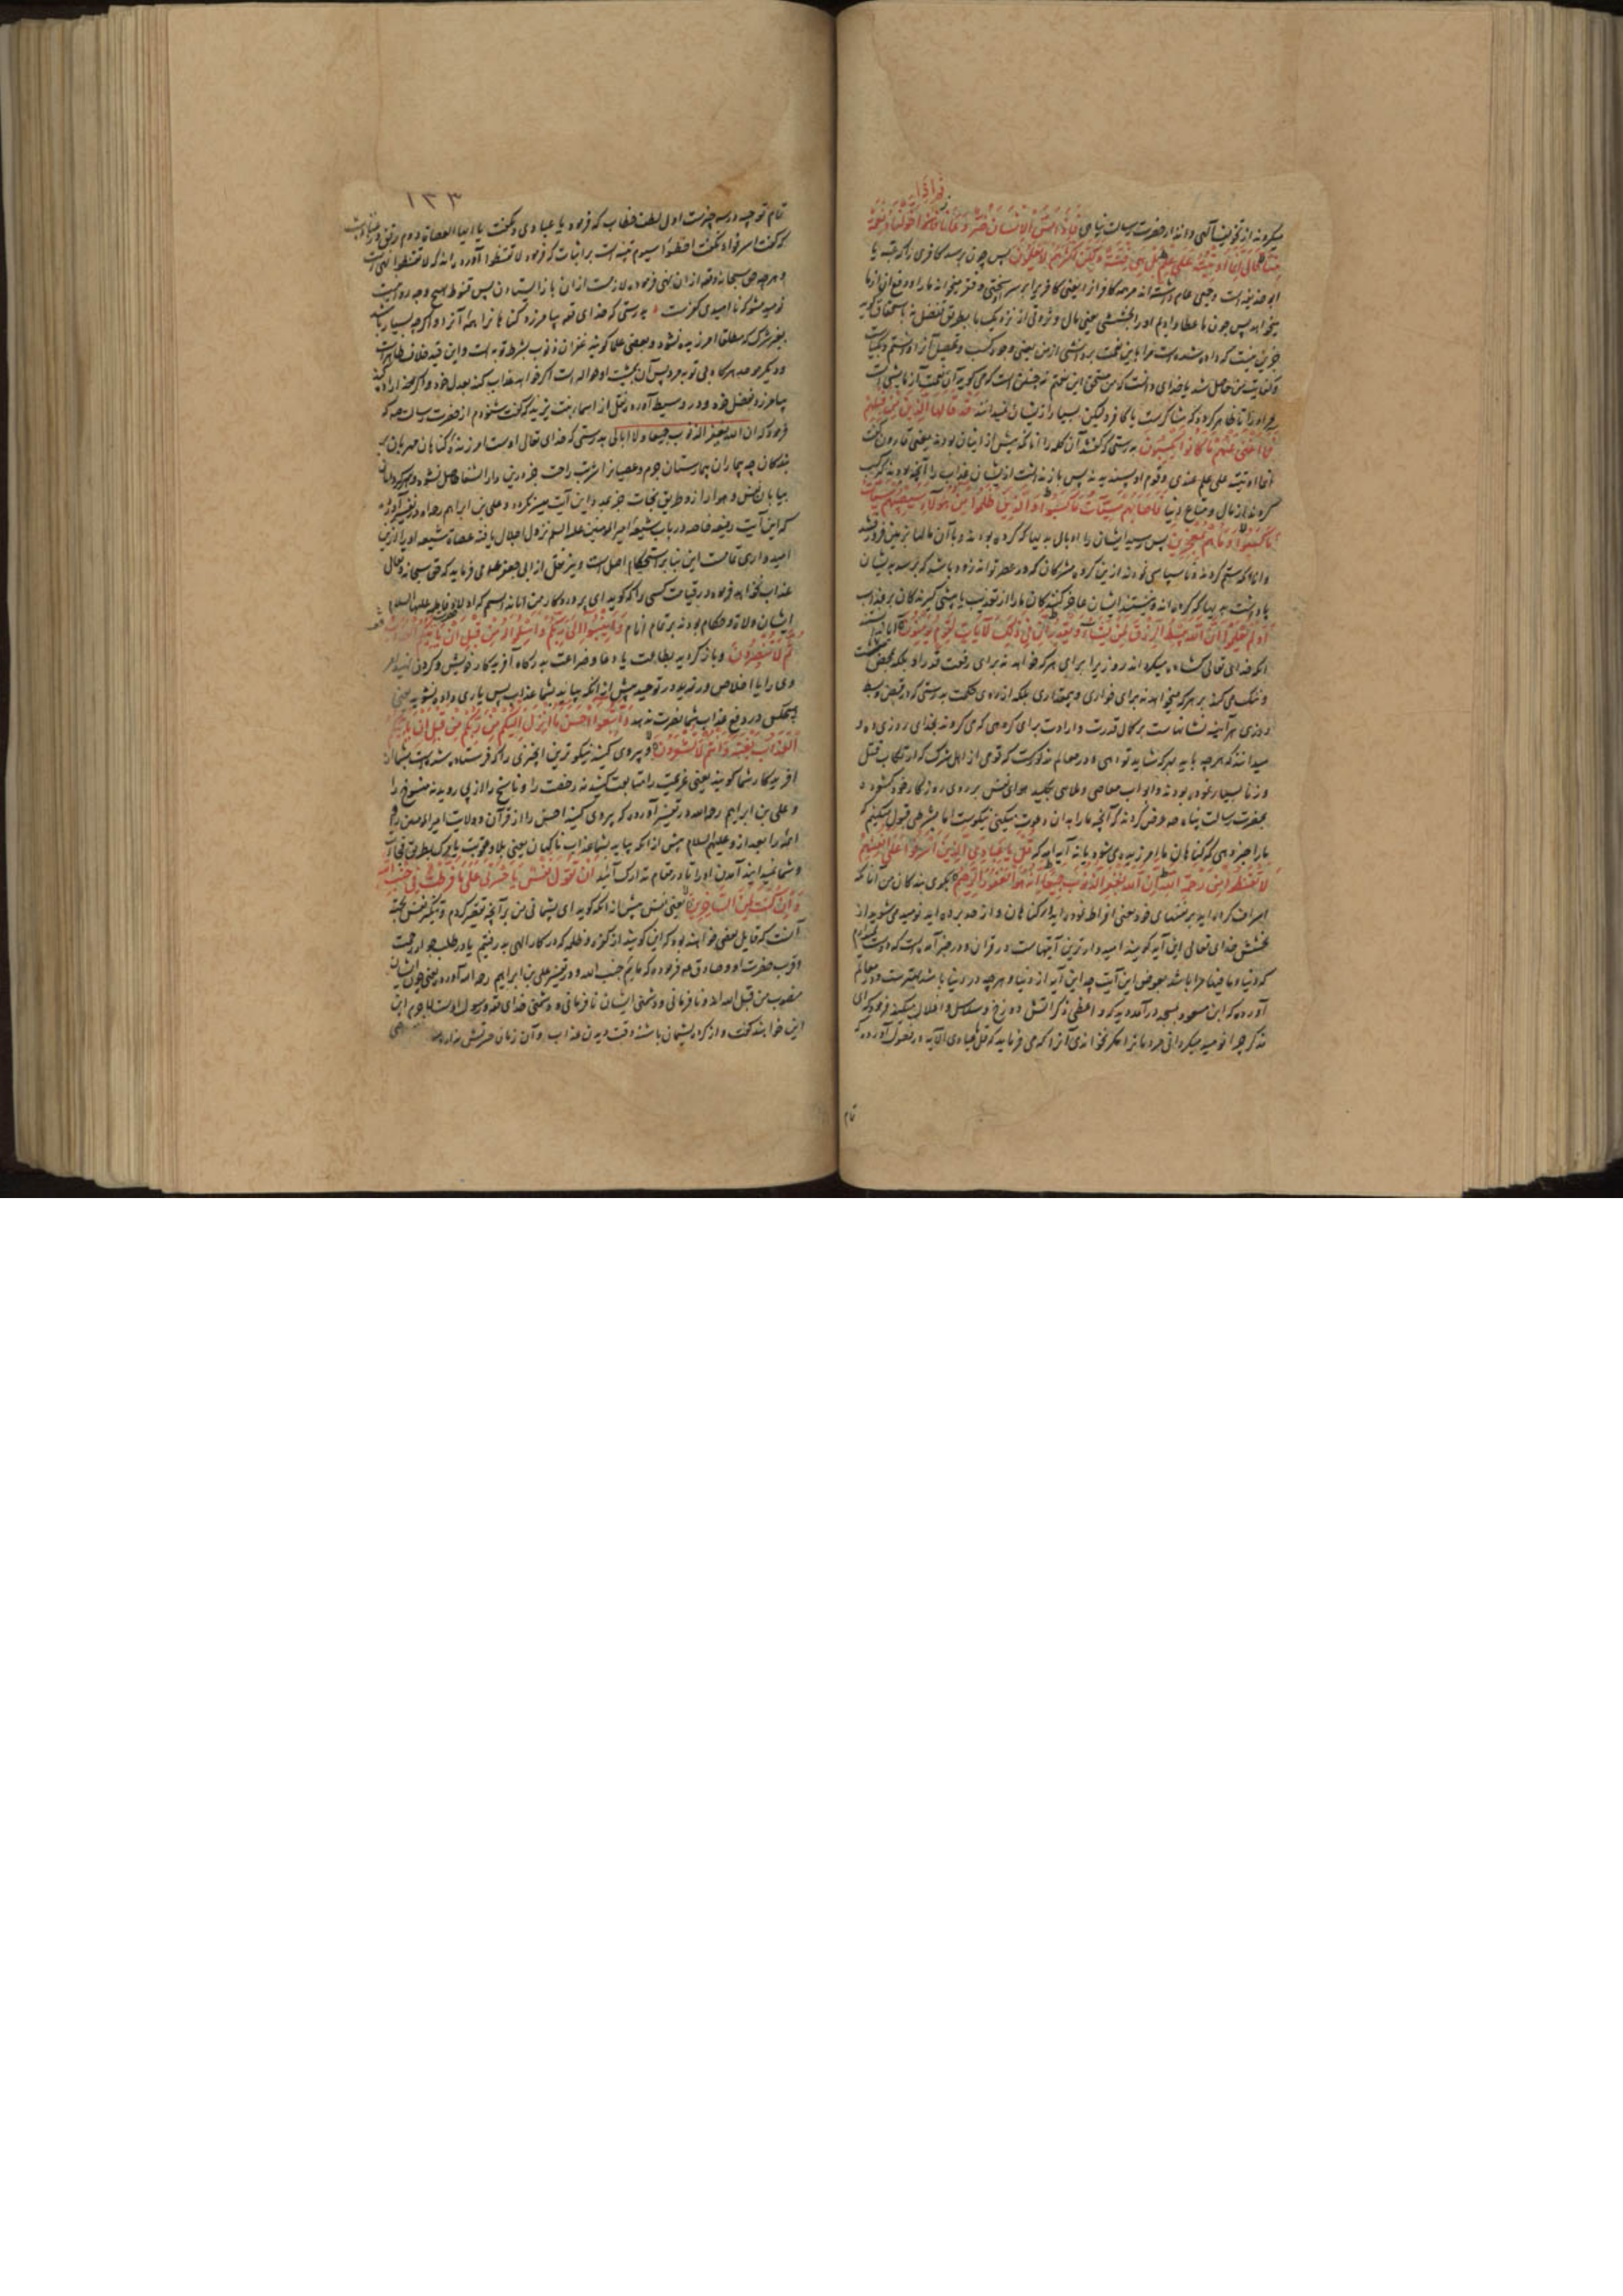 فاذا
میکردند از تخویفات الهی و انذار حضرت رسالت پناهی فَاِذَا مَسَّ الْاِنْسَانَ ضُرٌّ دَعَانَا ثُمَّ اِذَا خَوَّلْنَاهُ نِعْمَةً
مِنَّا قَالَ اِنَّمَا اُوتِيتُهُ عَلَى عِلْمٍ بَلْ هِيَ فِتْنَةٌ وَلَكِنَّ اَكْثَرَهُمْ لَا يَعْلَمُونَ پس چون برسد کافری را که عتبه یا
ابو حذیفه است و جمعی عام داشته اند مر همه کافر را یعنی کافر را سختی و فقر میخواند ما را و دفع آن از ما
میخواهد پس چون ما عطا دادیم او را بخششی یعنی مال و ثروتی از نزدیک ما بطریق تفضل نه استحقاق گوید
جز این نیست که داده شده است مرا باین نعمت بر دانشی از من یعنی وجوه کسب و تحصیل آن را دانستم و بکیاست
و کفایت من حاصل شد یا خدای دانست که من مستحق این نعمتم نه چنین است که می گوید آن نعمت آزمایشی است
مر او را تا ظاهر گردد که شاکر است یا کافر و لیکن بسیاری از ایشان نمیدانند قَدْ قَالَهَا الَّذِينَ مِنْ قَبْلِهِمْ
فَمَا اَغْنَى عَنْهُمْ مَا كَانُوا يَكْسِبُونَ بدرستی که گفتند آن کلمه را آنانکه پیش از ایشان بودند یعنی قارون گفت
انما اوتیته علی علم عندی و قوم او پسندیدند پس باز نداشت از ایشان عذاب را آنچه بودند که کسب
کردند از مال و متاع دنیا فَاَصَابَهُمْ سَيِّئَاتُ مَا كَسَبُوا وَالَّذِينَ ظَلَمُوا مِنْ هَؤُلَاءِ سَيُصِيبُهُمْ سَيِّئَاتُ
مَا كَسَبُوا وَمَا هُمْ بِمُعْجِزِينَ پس رسید ایشان را وبال بدیها که کرده بودند و با آن مالها بزمین فرو رفتند
و آنانکه ستم کردند و ناسپاسی نمودند ازین گروه مشرکان که در عصر تواند زود باشد که برسد بدیشان
پاداشت بدیها که کرده اند و نیستند ایشان عاجز کنندگان ما را از تعذیب یا پیشی گیرندگان بر عذاب
اَوَلَمْ يَعْلَمُوا اَنَّ اللّٰهَ يَبْسُطُ الرِّزْقَ لِمَنْ يَشَاءُ وَيَقْدِرُ اِنَّ فِي ذَلِكَ لَآيَاتٍ لِقَوْمٍ يُؤْمِنُونَ آیا ندانستند
آنکه خدای تعالی گشاده میگرداند روزی را برای هر که خواهد نه برای رفعت قدر او بلکه بمحض مشیت
و تنگ می کند بر هر که میخواهد نه برای خواری و بیمقداری بلکه از روی حکمت بدرستی که در قبض و بسط
روزی هر آینه نشانهاست بر کمال قدرت و ارادت برای گروهی که می گروند بخدای روزی ده و
میدانند که هر چه باید بهر که شاید تو دهی و در معالم مذکور است که قومی از اهل شرک که ارتکاب قتل
و زنا بسیار نموده بودند و ابواب معاصی و ملاهی بکلید هوای نفس بر روی روزگار خود گشوده
بحضرت رسالت پناه صه عرض کردند که آنچه ما را بدان دعوت میکنی نیکوست اما بشرطی قبول میکنیم که
ما را خبر دهی که گناهان ما آمرزیده می شود یا نه آیه آمد که قُلْ يَا عِبَادِيَ الَّذِينَ اَسْرَفُوا عَلَى اَنْفُسِهِمْ
لَا تَقْنَطُوا مِنْ رَحْمَةِ اللّٰهِ اِنَّ اللّٰهَ يَغْفِرُ الذُّنُوبَ جَمِيعًا اِنَّهُ هُوَ الْغَفُورُ الرَّحِيمُ بگوی بندگان من آنانکه
اسراف کرده اید بر نفسهای خود یعنی افراط نموده اید در گناهان و از حد برده اید نومید می شوید از
بخشش خدای تعالی این آیه گویند امیدوار ترین آیتهاست در قرآن و در خبر آمده است که دوست نمیدارم
که دنیا و مافیها مرا باشد بعوض این آیت چه این آیه از دنیا و هر چه در دنیا باشد بهتر است و در معالم
آورده که ابن مسعود بمسجد درآمد دید که واعظی ذکر آتش دوزخ و سلاسل و اغلال میکند فرمود که ای
مذکر چرا نومید میگردانی مردمان را مگر نخوانده آنرا که می فرماید که قل یا عبادی الآیه و در فصول آورده که
تمام
١٣٣
تمام توجیه در سه چیز است اول لطف خطاب که فرمود یا عبادی و نگفت یا ایها العصاة دوم رفق در عتاب
که گفت اسرفوا و نگفت اخطئوا سیوم تنبیه است بر اثبات که فرمود لا تقنطوا آورده اند که لا تقنطوا نهی است
و هر چه حق سبحانه و تعالی از آن نهی فرموده لازمست از آن باز ایستادن پس قنوط بهیچ وجه روا نیست
نومید مشو که ناامیدی کفرست بدرستی که خدای تعالی بیامرزد گناهان را همه آنرا و اگر چه بسیار باشد
بغیر شرک که مطلقا آمرزیده نشود و بعضی علما گویند غفران ذنوب بشرط توبه است و این قید خلاف ظاهرست
و دیگر موحد هر گاه بی توبه مرد پس آن بمشیت او حواله است اگر خواهد عذاب کند بعدل خود و اگر خواهد او را
بیامرزد بفضل خود و در وسیط آورده نقل از اسماء بنت یزید که گفت شنودم از حضرت رسالت صه که
فرمود که ان الله یغفر الذنوب جمیعا و لا ابالی بدرستی که خدای تعالی اوست آمرزنده گناهان مهربان بر
بندگان چه بیماران بیمارستان جرم و عصیان را شربت راحت جز درین دار الشفا حاصل نشود و سرگردانان
بیابان نفس و هوا را زاد طریق نجات جز بمدد این آیت میسر نگردد و علی بن ابراهیم رحمه الله در تفسیر آورده
که این آیت رفیعه خاصه در باب شیعه امیر المومنین علیه السلم نزول اجلال یافته عصاة شیعه او را ازینجا
امیدواری تمامست این بنا بر استحکام اصل است و نیز نقل از ابی جعفر علوی فرماید که حق سبحانه و تعالی
عذاب نخواهد فرمود در قیامت کسی را که گوید ای پروردگار من ندانستم که اولاد فاطمه علیها السلام
ایشان ولاة و حکام بودند بر تمام انام وَاَنِيبُوا اِلَى رَبِّكُمْ وَاَسْلِمُوا لَهُ مِنْ قَبْلِ اَنْ يَاْتِيَكُمُ الْعَذَابُ
ثُمَّ لَا تُنْصَرُونَ و باز گردید بطاعت یا دعا و ضراعت بدرگاه آفریدگار خویش و گردن نهید امر
وی را یا اخلاص ورزید در توحید پیش از آنکه بیاید بشما عذاب پس یاری داده نشوید یعنی
هیچکس در دفع عذاب شما نصرت ندهد وَاتَّبِعُوا اَحْسَنَ مَا اُنْزِلَ اِلَيْكُمْ مِنْ رَبِّكُمْ مِنْ قَبْلِ اَنْ يَاْتِيَكُمُ
الْعَذَابُ بَغْتَةً وَاَنْتُمْ لَا تَشْعُرُونَ و پیروی کنید نیکوترین آنچیزی را که فرستاده شده است بشما از
آفریدگار شما گویند یعنی عزیمت را متابعت کنید نه رخصت را و ناسخ را از پی روید نه منسوخ را
و علی بن ابراهیم رحمه الله در تفسیر آورده که پیروی کنید احسن را از قرآن و ولایت امیر المومنین را و
ائمه را بعد از و علیهم السلام پیش از آنکه بیاید بشما عذاب ناگهان یعنی بلا و عقوبت یا مرگ بطریق فجأت
و شما نمیدانید آمدن او را تا در مقام تدارک آئید اَنْ تَقُولَ نَفْسٌ يَا حَسْرَتَى عَلَى مَا فَرَّطْتُ فِي جَنْبِ اللّٰهِ
وَاِنْ كُنْتُ لَمِنَ السَّاخِرِينَ یعنی نفس پیش از آنکه گوید ای پشیمانی من بر آنچه تقصیر کردم و تنکیر نفس بجهة
آنست که قایل بعضی خواهند بود که این گویند از کفره و ظلمه که در کار الهی بد رفتیم یا در طلب جوار رحمت
و قرب حضرت او و صادق عه فرموده که مائیم جنب الله و در تفسیر علی بن ابراهیم رحمه الله آورده یعنی چون ایشان
منصوب من قبل الله اند و نافرمانی و دشمنی ایشان نافرمانی و دشمنی خدای تعالی و رسول اوست لاجرم این
این خواهند گفت و از کرده پشیمان باشند وقت دیدن عذاب و آن زمان حسرتش ندارد